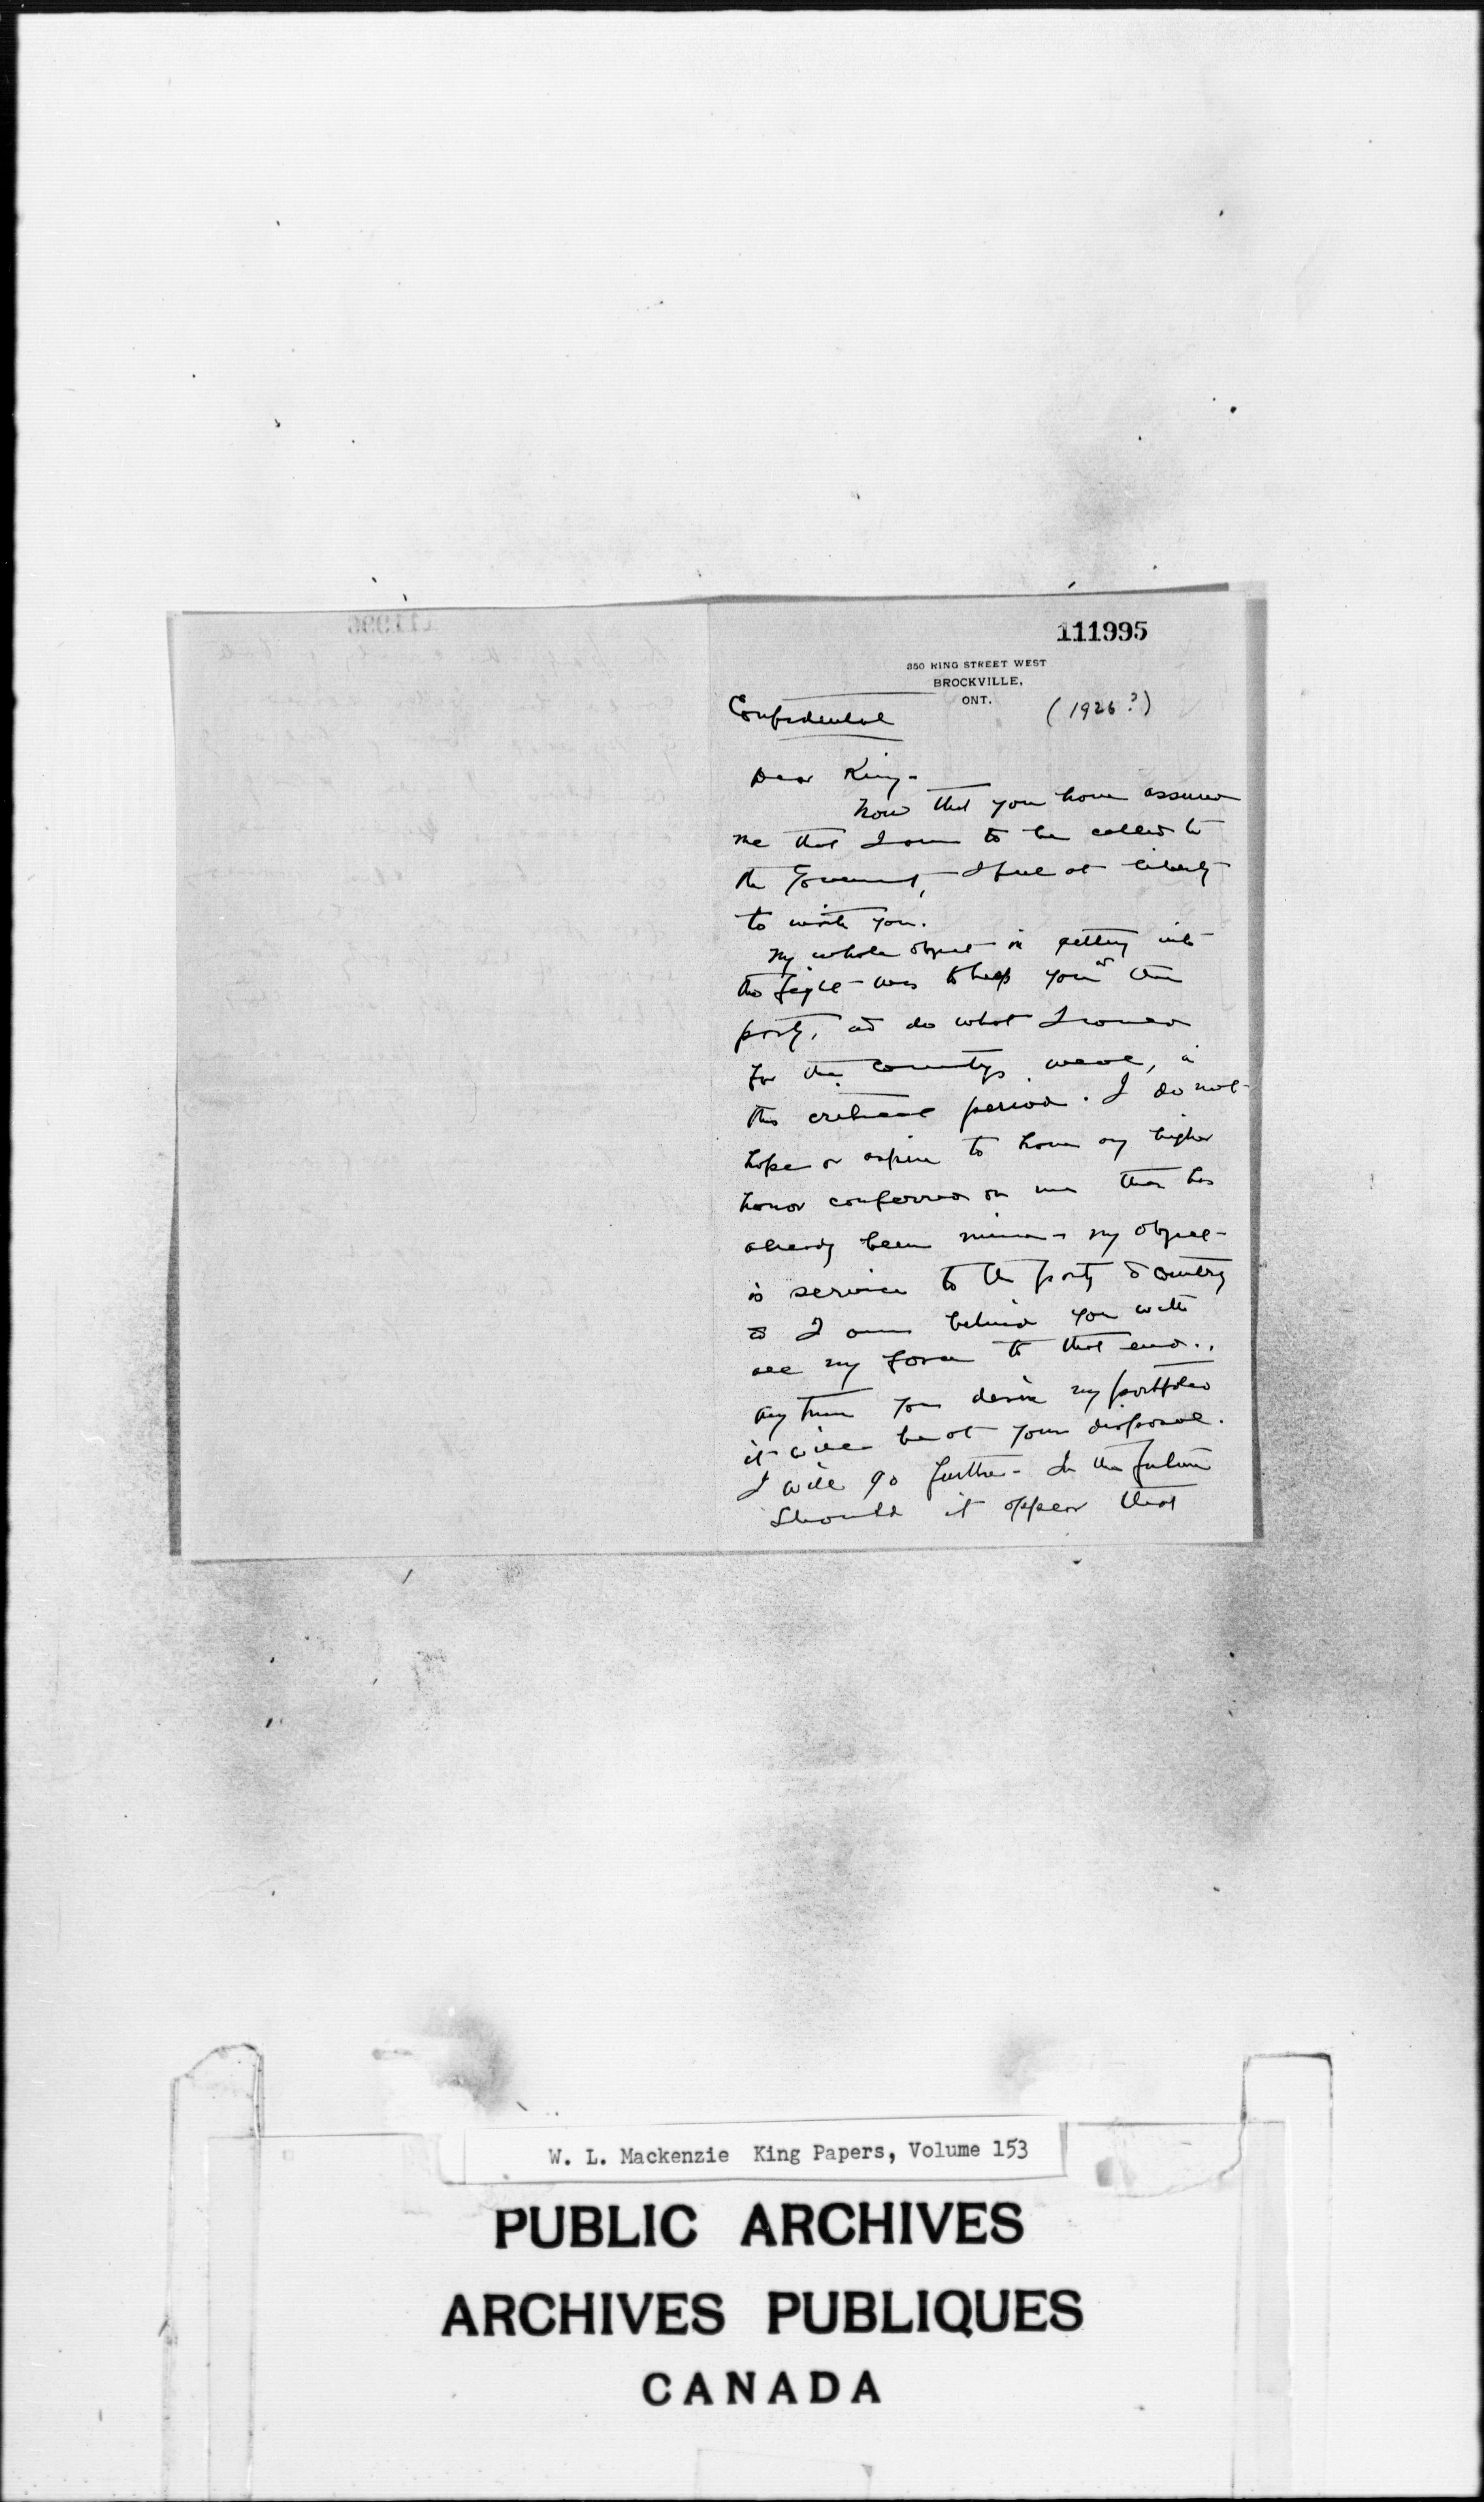 111995
350 KING STREET WEST
BROCKVILLE,
ONT.
(1926?)
Confidential
Dear King -
Now that you have assured
me that I am to be called to
the Government, I feel at liberty
to write you.
My whole object in getting into
the fight was to help you & the
party, and do what I could
for the country's weal, in
this critical period. I do not
hope or aspire to have any higher
honor conferred on me than has
already been mine - my object
is service to the party & country
& I am behind you with
all my force to that end..
Any time you desire my portfolio
it will be at your disposal.
I will go further - In the future
should it appear that
W. L. Mackenzie King Papers, Volume 153
PUBLIC ARCHIVES
ARCHIVES PUBLIQUES
CANADA